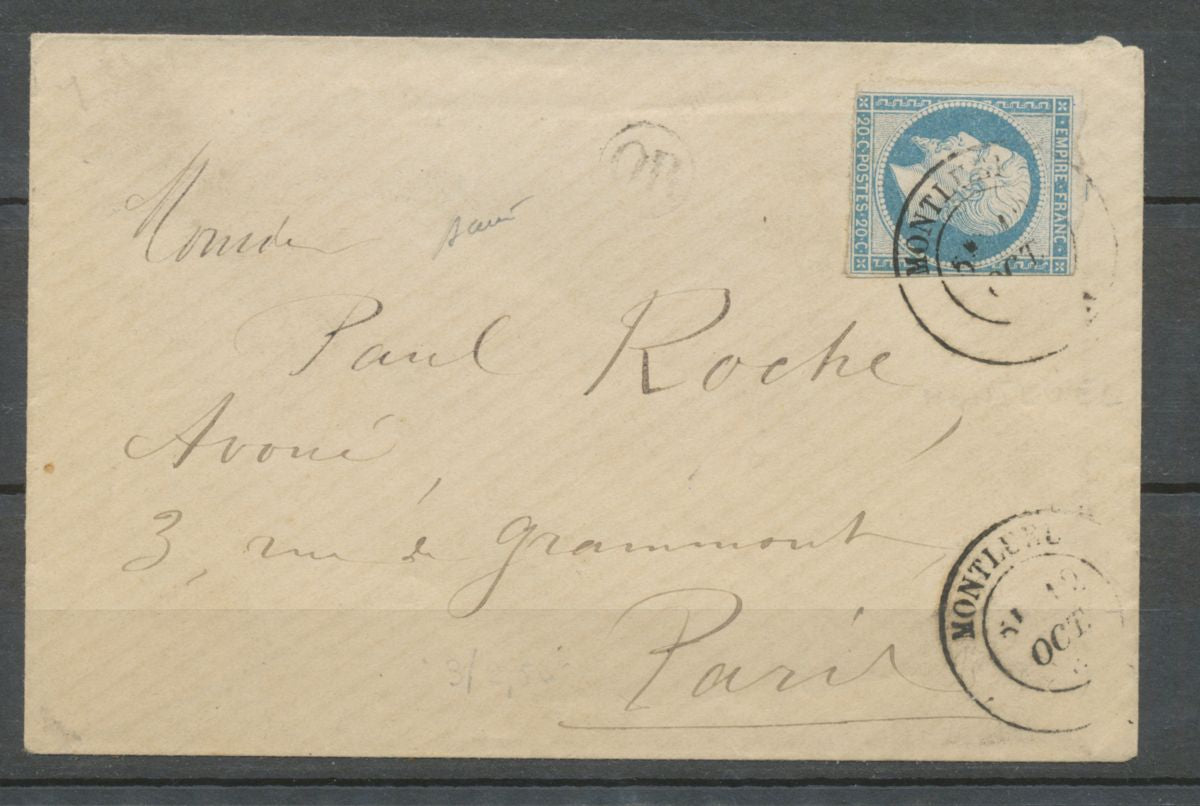 OR
EMPIRE·FRANC·
20·C·POSTES·20·C
MONTLUEL
5E
OCT.
Monsieur
Paul Roche,
Avoué
3, rue de Grammont,
Paris
MONTLUEL
12
OCT.